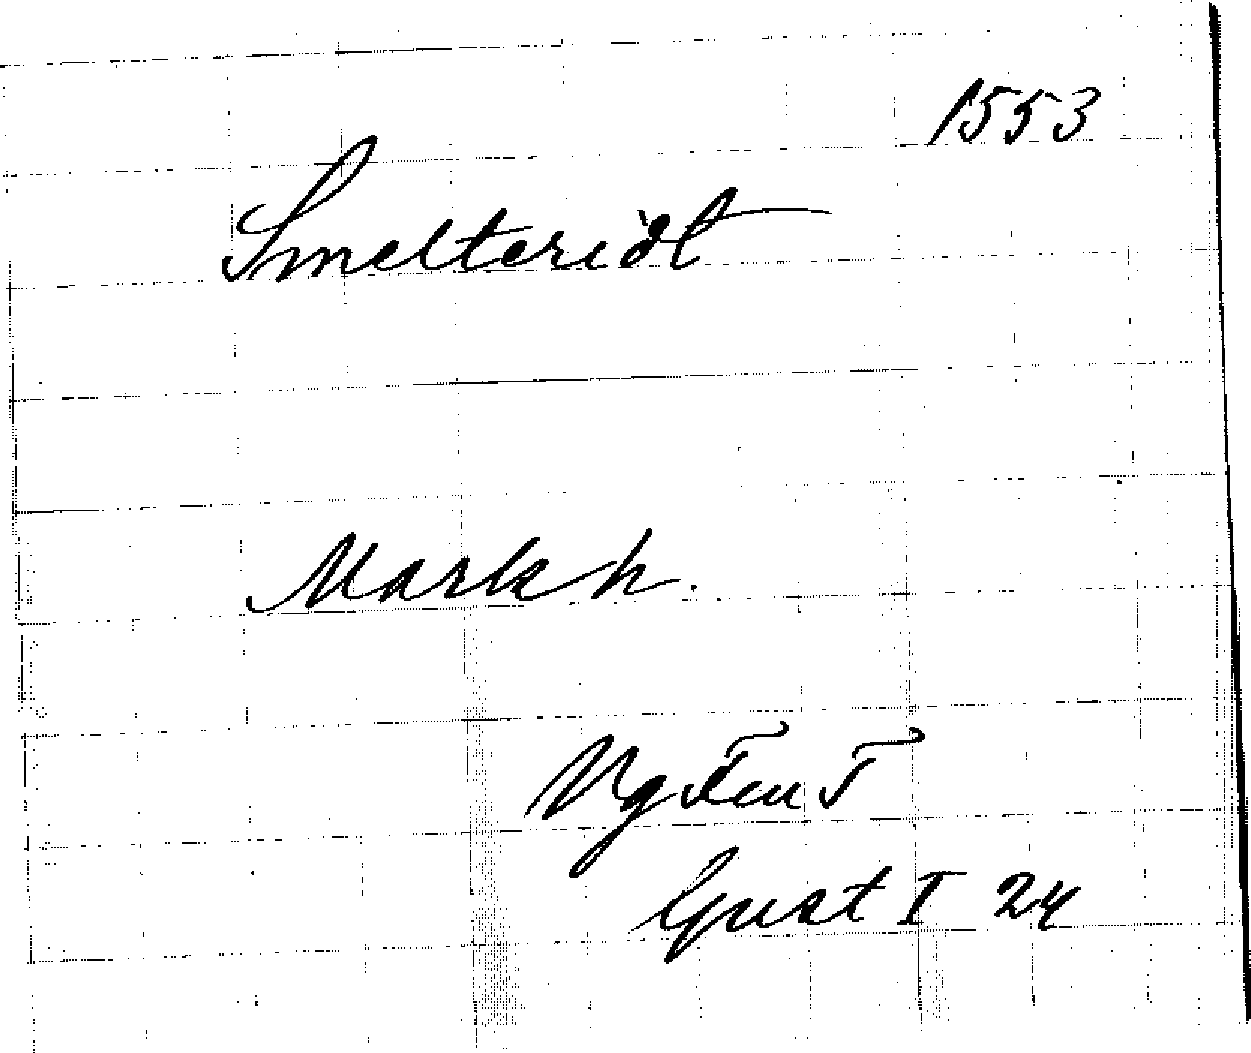 1553
Smelteridt
Mark h.
Vg
Gust I 24